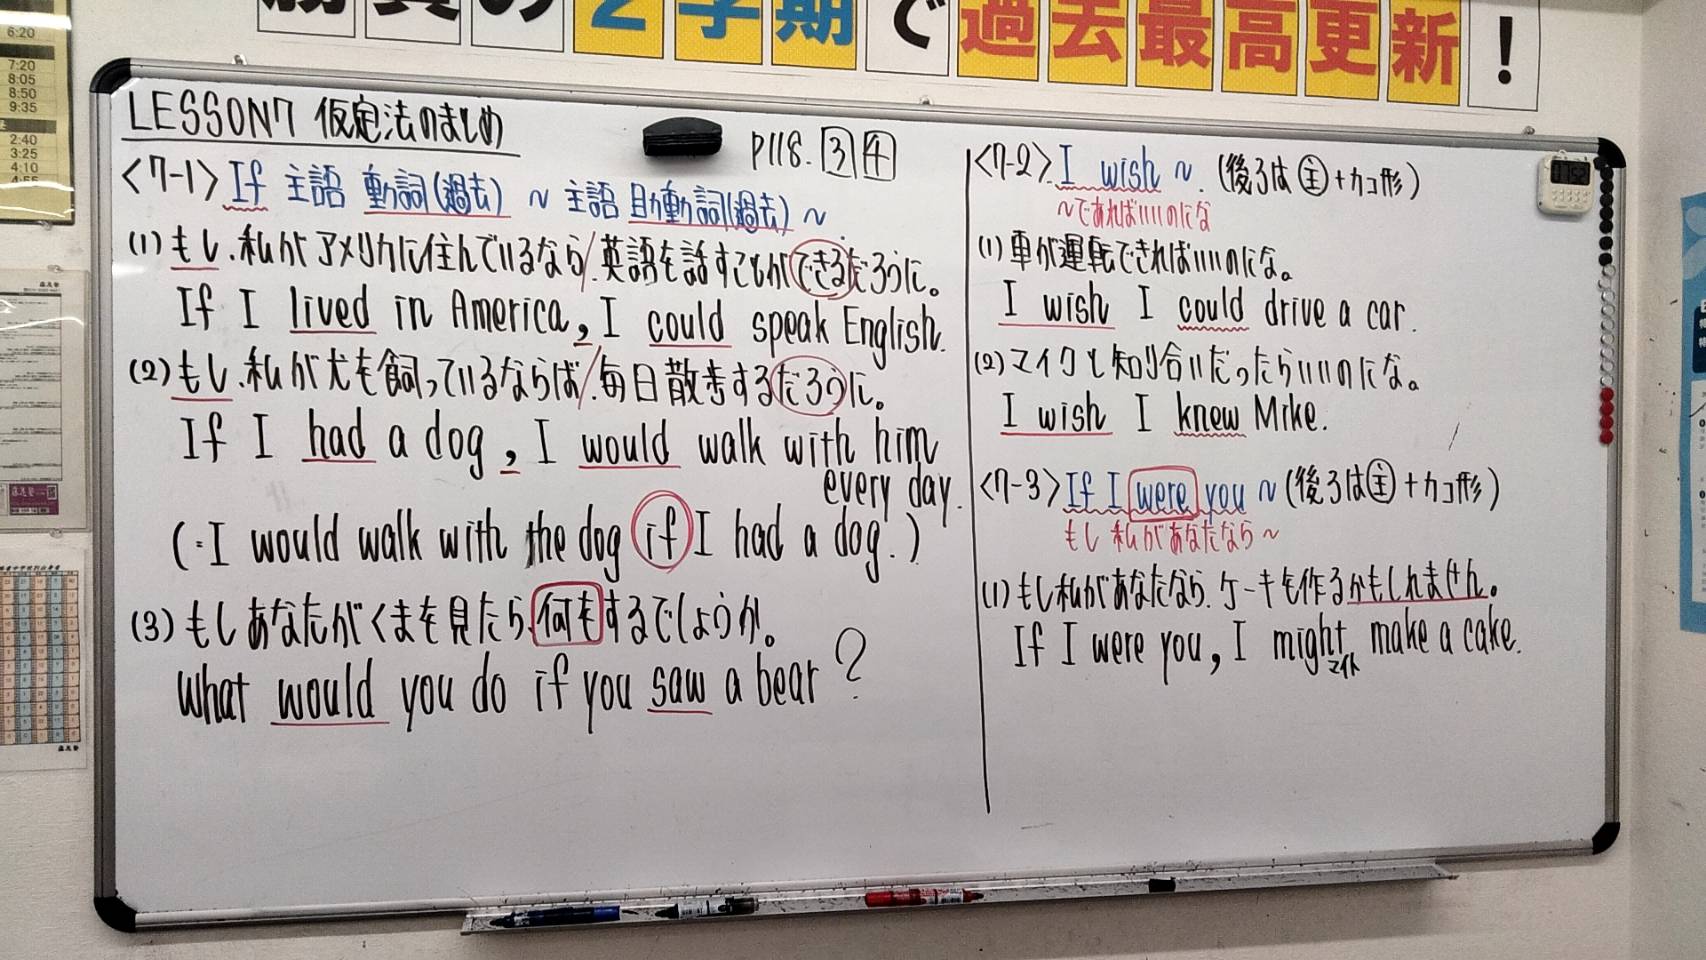 の2学期で過去最高更新!
6:20
7:20
8:05
8:50
9:35
2:40
3:25
4:10
LESSON7 仮定法のまとめ
P118. 3 4
<7-1> If 主語 動詞(過去) ~ 主語 助動詞(過去) ~.
(1) もし、私がアメリカに住んでいるなら/英語を話すことができるだろうに。
If I lived in America, I could speak English.
(2) もし、私が犬を飼っているならば/毎日散歩するだろうに。
If I had a dog, I would walk with him
every day.
(=I would walk with the dog if I had a dog.)
(3) もしあなたがくまを見たら、何をするでしょうか。
What would you do if you saw a bear?
<7-2> I wish ~. (後ろは主+カコ形)
~であればいいのにな
(1) 車が運転できればいいのにな。
I wish I could drive a car.
(2) マイクと知り合いだったらいいのにな。
I wish I knew Mike.
<7-3> If I were you ~ (後ろは主+カコ形)
もし私があなたなら~
(1) もし私があなたなら、ケーキを作るかもしれません。
If I were you, I might make a cake.
マイト